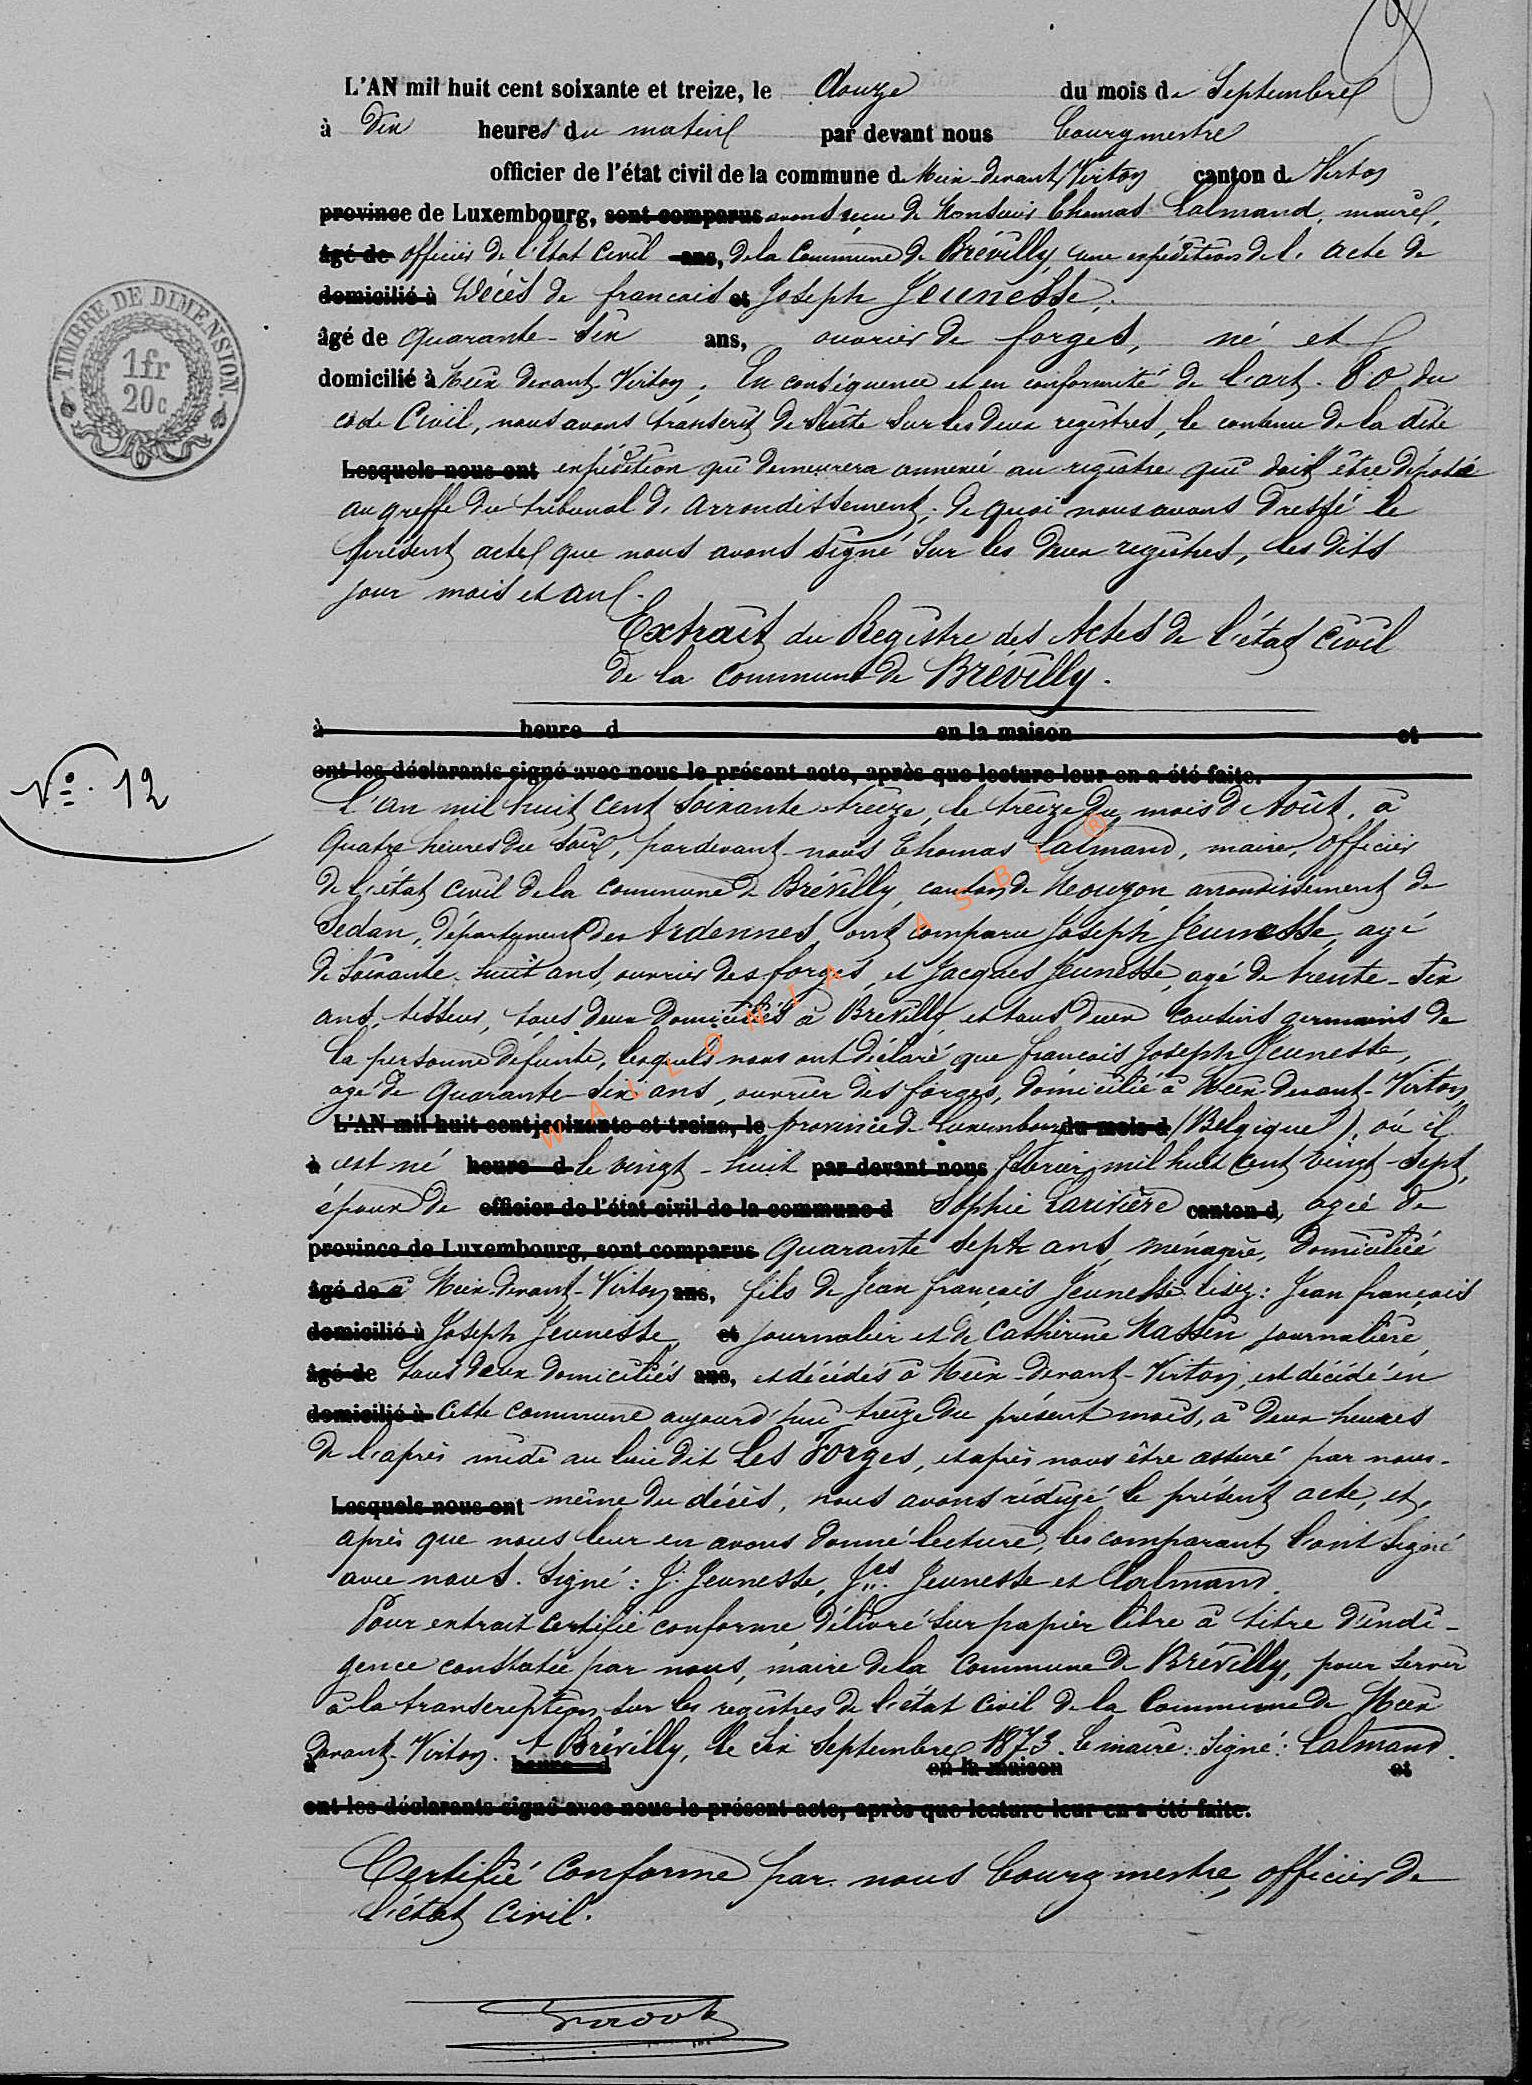 L'AN mil huit cent soixante et treize, le douze du mois de Septembre
à dix heures du matin par devant nous bourgmestre
officier de l'état civil de la commune d Meix-devant-Virton canton d Virton
province de Luxembourg, sont comparus avons reçu de Monsieur Thomas Lalmand, maire,
âgé de officier de l'État Civil ans, de la Commune de Brévilly, une expédition de l'acte de
domicilié à Décès de francois et Joseph Jeunesse,
âgé de quarante-six ans, ouvrier de forges, né et
domicilié à Meix devant Virton. En conséquence et en conformité de l'art. 80 du
code Civil, nous avons transcrit de suite sur les deux registres, le contenu de la dite
Lesquels nous ont expédition qui demeurera annexée au registre qui doit être déposé
au greffe du tribunal d'arrondissement; de quoi nous avons dressé le
présent acte que nous avons signé sur les deux registres, les dits
jour mois et an.
Extrait du Registre des Actes de l'état civil
de la commune de Brévilly.
à heure d en la maison et
ont les déclarants signé avec nous le présent acte, après que lecture leur en a été faite.
TIMBRE DE DIMENSION
1 fr
20 c
N° 12
L'an mil huit cent soixante treize, le treize du mois d'Août, à
quatre heures du soir, pardevant nous Thomas Lalmand, maire, officier
de l'état civil de la commune de Brévilly, canton de Mouzon arrondissement de
Sedan, département des Ardennes, ont comparu Joseph Jeunesse, agé
de soixante-huit ans, ouvrier des forges, et Jacques Jeunesse, agé de trente-six
ans, tisseur, tous deux domiciliés à Brévilly et tous deux cousins germains de
la personne défunte, lesquels nous ont déclaré que francois Joseph Jeunesse,
agé de quarante-six ans, ouvrier des forges, domicilié à Meix-devant-Virton,
L'AN mil huit cent soixante et treize, le province de Luxembourg du mois d (Belgique), où il
à est né heure d le vingt-huit par devant nous février mil huit cent vingt-sept,
époux de officier de l'état civil de la commune d Sophie Larivière canton d, agée de
province de Luxembourg, sont comparus quarante sept ans, ménagère, domiciliée
âgé de à Meix-devant-Virton ans, fils de Jean françois Jeunesse lisez: Jean françois
domicilié à Joseph Jeunesse, et journalier et de Cathérine Massin journalière,
âgé de tous deux domiciliés ans, et décédés à Meix-devant-Virton, est décédé en
domicilié à cette commune aujourd'hui treize du présent mois, à deux heures
de l'après midi au lieu dit Les Forges, et après nous être assuré par nous-
Lesquels nous ont même du décès, nous avons rédigé le présent acte, et,
après que nous leur en avons donné lecture, les comparants l'ont signé
avec nous. Signé: J. Jeunesse, Jes. Jeunesse et Lalmand.
Pour extrait certifié conforme, délivré sur papier libre à titre d'indi-
gence constatée par nous, maire de la Commune de Brévilly, pour servir
à la transcription sur les registres de l'état civil de la Commune de Meix
devant-Virton. A Brévilly, le six Septembre 1873. Le maire: Signé: Lalmand.
à heure d en la maison et
ont les déclarants signé avec nous le présent acte, après que lecture leur en a été faite.
Certifié conforme par nous bourgmestre, officier de
l'état civil.
WALLONIA ASBL ®